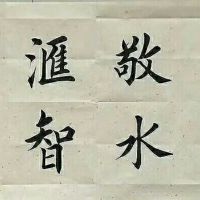 敬水
滙智